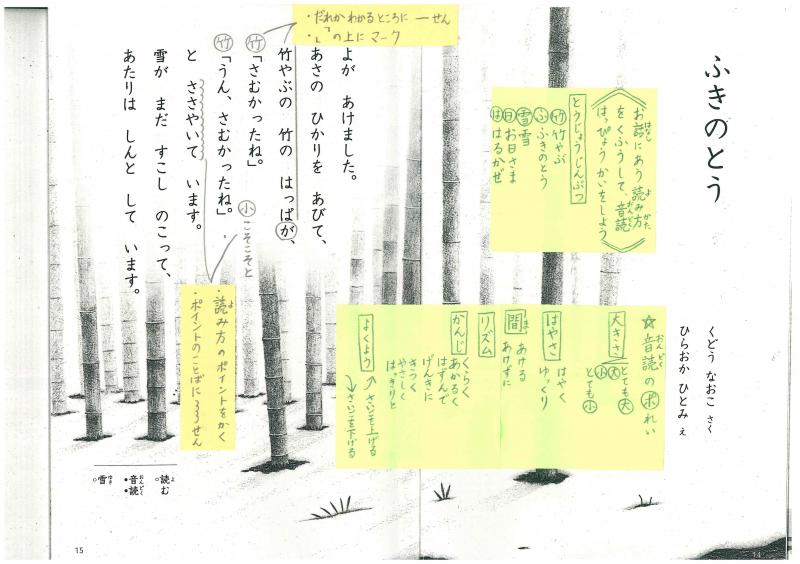 ふきのとう
くどう なおこ さく
ひらおか ひとみ え
お話にあう読み方
はなし よ かた
をくふうして、音読
おんどく
はっぴょうかいをしよう
とうじょうじんぶつ
竹 竹やぶ
ふ ふきのとう
雪 雪
日 お日さま
は はるかぜ
☆音読のポれい
おんどく
大きさ
大 とても大
小 とても小
はやさ
はやく
ゆっくり
間
ま
あける
あけずに
リズム
かんじ
くらく
あかるく
はずんで
げんきに
きつく
やさしく
はっきりと
よくよう
さいごを上げる
さいごを下げる
14
・だれかわかるところに ーせん
・「の上にマーク
よが あけました。
あさの ひかりを あびて、
竹やぶの 竹の はっぱが、
竹
「さむかったね。」
竹
「うん、さむかったね。」
小 こそこそと
と ささやいて います。
雪が まだ すこし のこって、
あたりは しんと して います。
・読み方のポイントをかく
よ
・ポイントのことばに 〰せん
○読む
よ
●音読
おんどく
○雪
ゆき
15